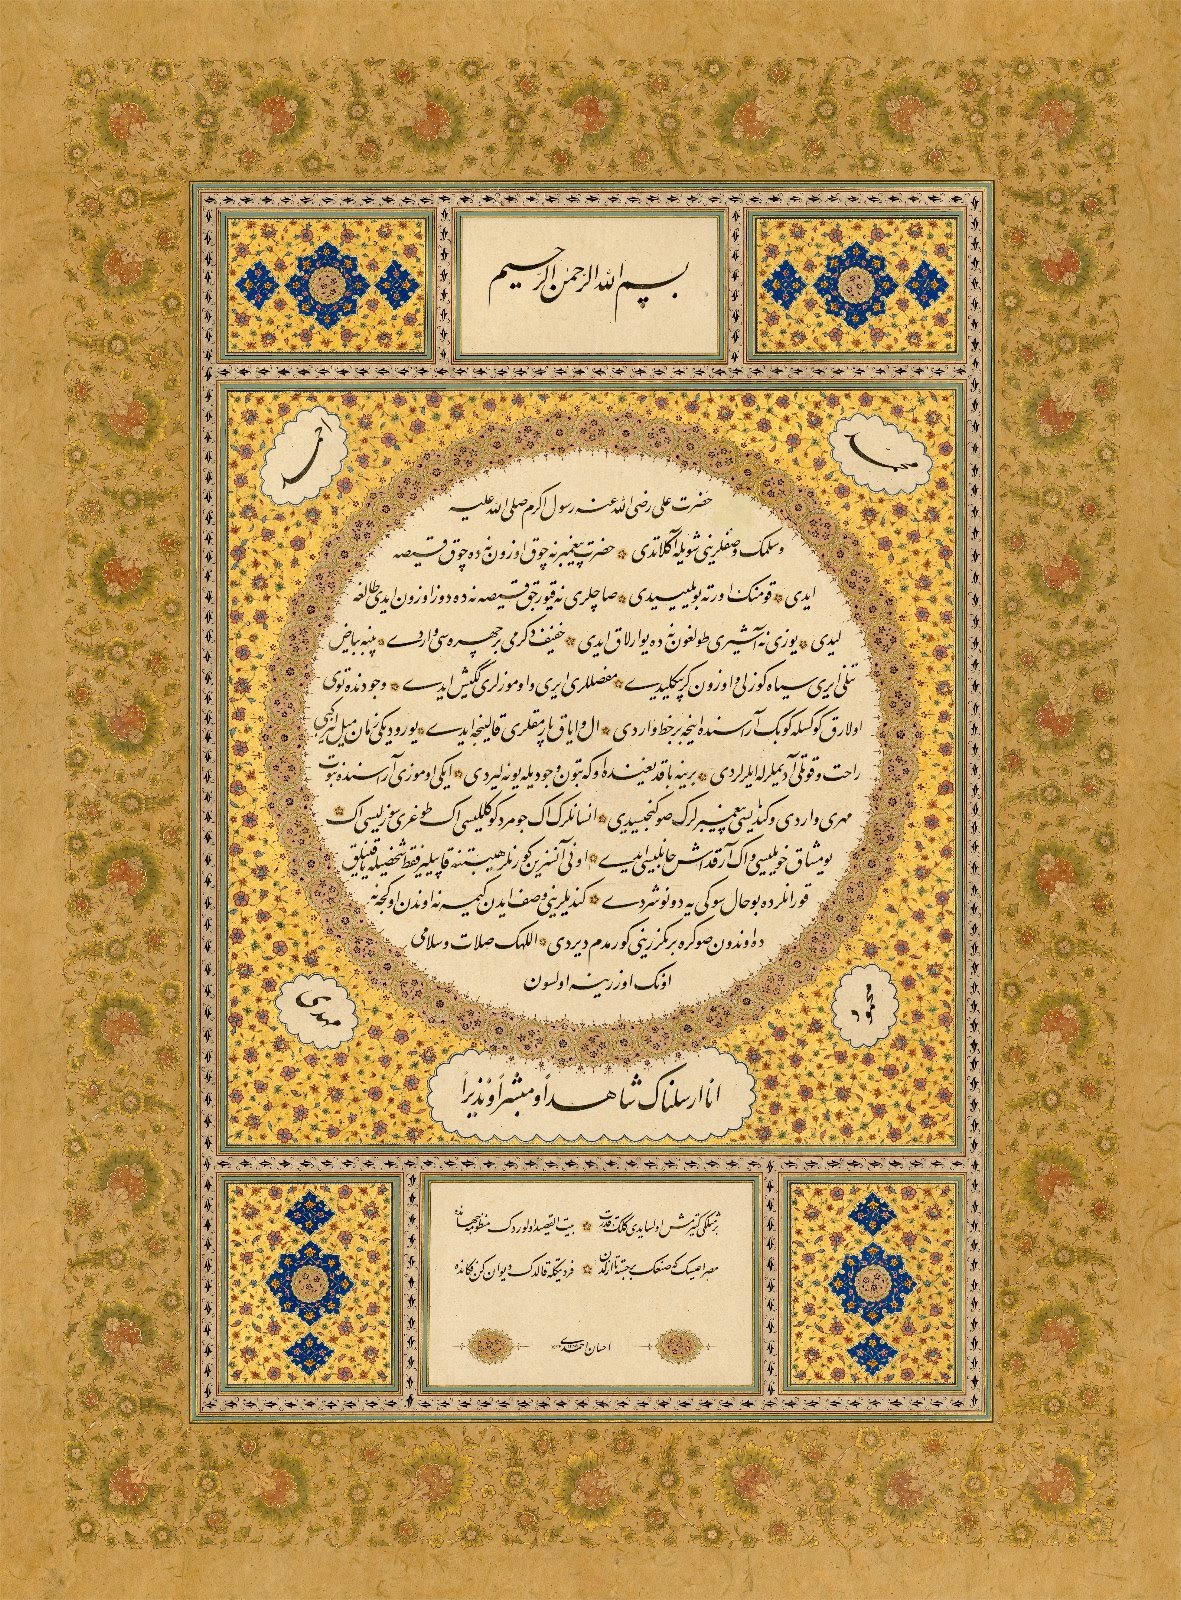 بسم الله الرحمن الرحيم
محمد
احمد
حضرت علی رضی الله عنه رسول اکرم صلی الله علیه
وسلمك وصفلرینی شویله آکلاتدی حضرت پیغمبر نه چوق اوزون نه ده چوق قیصه
ایدی قومنك اورته بویلیسیدی صاچلری نه قیورجق قیصه نه ده دوز اوزون ایدی طالغه
لیدی یوزی نه آشیری طولغون نه ده یوارلاق ایدی خفیف دکرمی بر چهره سی واردی پنبه بیاض
تنلی ایری سیاه کوزلی و اوزون کرپیکلیدی مفصللری ایری واوموزلری کنیش ایدی وجودنده توی
اولارق کوکسله کوبك آراسنده اینجه بر خط واردی ال و ایاق پارمقلری قالینجه ایدی یورودیکی زمان میل
راحت و قوتلی آدیملرله ایلرلردی بر ینه باقدیغنده بتون وجودیله یونه لیردی ایکی اوموزی آراسنده نبوت
مهری واردی وکندیسی پیغمبرلرك صوکنجیسیدی انسانلرك اك جومرد کوکللیسی اك طوغری سوزلیسی اك
یومشاق خویلیسی و اك آرقداش جانلیسی ایدی اونی آنسزین کورنلر هیبتنه قاپیلیر فقط شخصیله
قورانلر ده بو حال سوکی یه دونوشردی کندیلرینی وصف ایدن کیمسه نه اوندن اوکجه نه
ده اوندن صوکره بر بکزرینی کورمدم دیردی اللهك صلات و سلامی
اونك اوزرینه اولسون
محمود
مهدی
انا ارسلناك شاهدا ومبشرا ونذيرا
احسان احمدی